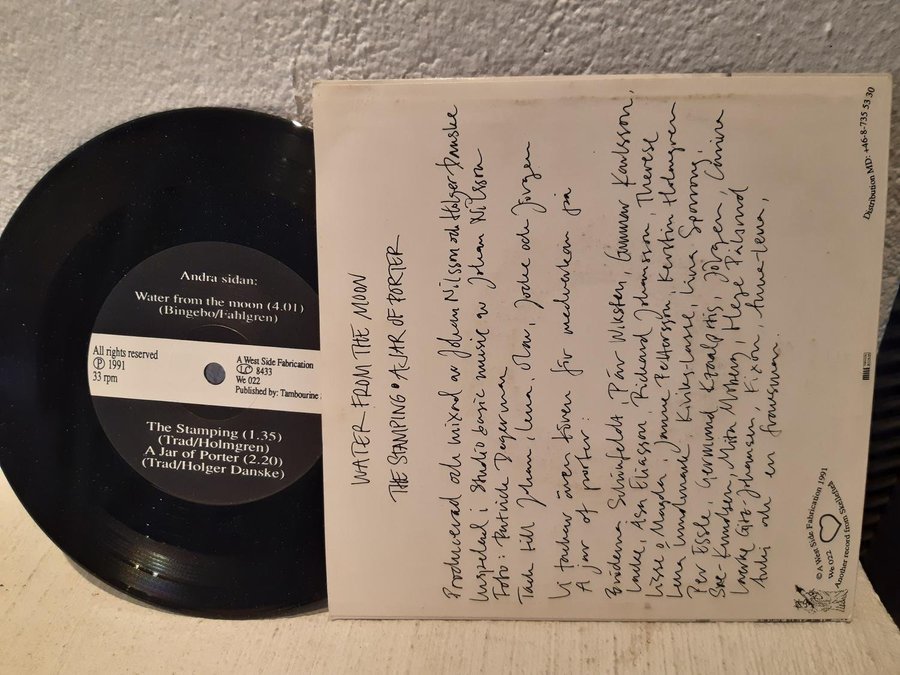 Andra sidan:
Water from the moon (4.01)
(Bingebo/Fahlgren)
All rights reserved
Ⓟ 1991
33 rpm
A West Side Fabrication
LC 8433
We 022
Published by: Tambourine
The Stamping (1.35)
(Trad/Holmgren)
A Jar of Porter (2.20)
(Trad/Holger Danske)
WATER FROM THE MOON
THE STAMPING • A JAR OF PORTER
Producerad och mixad av Johan Nilsson och Holger Danske
Inspelad i Studio basic music av Johan Nilsson
Foto: Patrick Degerman
Tack till Johan, Lena, Jocke och Jörgen
Vi tackar även kören för medverkan på
A jar of porter:
Bröderna Schönfeldt, Pär Wiksten, Gunnar Karlsson,
Lasse, Åsa Eliasson, Rickard Johansson, Therese
Lisse, Magda, Janne Pettersson, Kerstin Holmgren
Lena Lundmark, Kirby-Lasse, Lina Sporrong,
Per Essle, Germund, Jörgen, Carina
Knudsen, Mita Hege Pålsrud
Johansson, Fixon, Anna-Lena,
Anki och en fransman.
Distribution MD: +46-8-735 53 30
© A West Side Fabrication 1991
We 022
Another record from